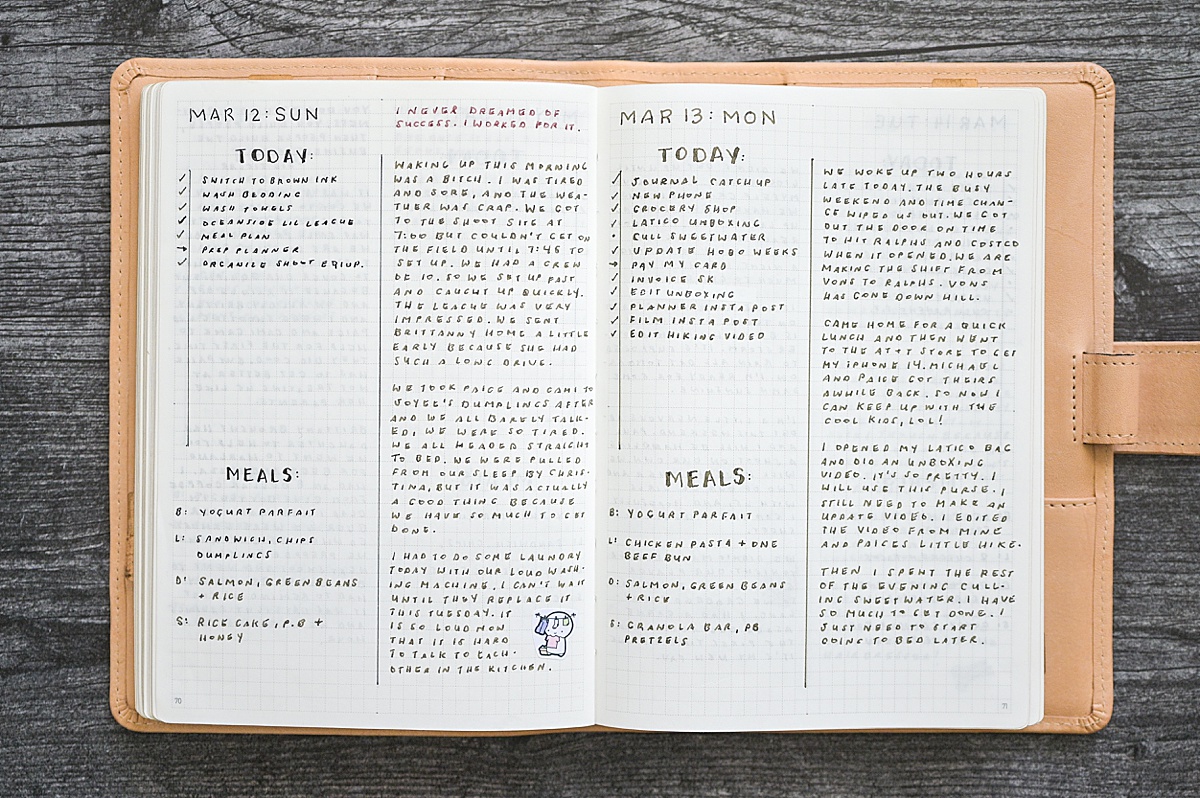 MAR 12: SUN
I NEVER DREAMED OF
SUCCESS. I WORKED FOR IT.
TODAY:
✓ SWITCH TO BROWN INK
✓ WASH BEDDING
✓ WASH TOWELS
✓ OCEANSIDE LIL LEAGUE
✓ MEAL PLAN
→ PREP PLANNER
✓ ORGANIZE SHOOT EQUIP.
MEALS:
B: YOGURT PARFAIT
L: SANDWICH, CHIPS
DUMPLINGS
D: SALMON, GREEN BEANS
+ RICE
S: RICE CAKE, P.B +
HONEY
WAKING UP THIS MORNING
WAS A BITCH. I WAS TIRED
AND SORE, AND THE WEA-
THER WAS CRAP. WE GOT
TO THE SHOOT SITE AT
7:00 BUT COULDN'T GET ON
THE FIELD UNTIL 7:45 TO
SET UP. WE HAD A CREW
OF 10. SO WE SET UP FAST
AND CAUGHT UP QUICKLY.
THE LEAGUE WAS VERY
IMPRESSED. WE SENT
BRITTANNY HOME A LITTLE
EARLY BECAUSE SHE HAD
SUCH A LONG DRIVE.
WE TOOK PAIGE AND CAMI TO
JOYEE'S DUMPLINGS AFTER
AND WE ALL BARELY TALK-
ED, WE WERE SO TIRED.
WE ALL HEADED STRAIGHT
TO BED. WE WERE PULLED
FROM OUR SLEEP BY CHRIS-
TINA, BUT IT WAS ACTUALLY
A GOOD THING BECAUSE
WE HAVE SO MUCH TO GET
DONE.
I HAD TO DO SOME LAUNDRY
TODAY WITH OUR LOUD WASH-
ING MACHINE. I CAN'T WAIT
UNTIL THEY REPLACE IT
THIS TUESDAY. IT
IS SO LOUD NOW
THAT IT IS HARD
TO TALK TO EACH
OTHER IN THE KITCHEN.
70
MAR 13: MON
TODAY:
✓ JOURNAL CATCH UP
✓ NEW PHONE
✓ GROCERY SHOP
✓ LATICO UNBOXING
• CULL SWEETWATER
✓ UPDATE HOBO WEEKS
→ PAY MY CARD
✓ INVOICE SK
✓ EDIT UNBOXING
✓ PLANNER INSTA POST
✓ FILM INSTA POST
✓ EDIT HIKING VIDEO
MEALS:
B: YOGURT PARFAIT
L: CHICKEN PASTA + ONE
BEEF BUN
D: SALMON, GREEN BEANS
+ RICE
S: GRANOLA BAR, PB
PRETZELS
WE WOKE UP TWO HOURS
LATE TODAY. THE BUSY
WEEKEND AND TIME CHAN-
GE WIPED US OUT. WE GOT
OUT THE DOOR ON TIME
TO HIT RALPHS AND COSTCO
WHEN IT OPENED. WE ARE
MAKING THE SHIFT FROM
VONS TO RALPHS. VONS
HAS GONE DOWN HILL.
CAME HOME FOR A QUICK
LUNCH AND THEN WENT
TO THE AT+T STORE TO GET
MY IPHONE 14. MICHAEL
AND PAIGE GOT THEIRS
AWHILE BACK. SO NOW I
CAN KEEP UP WITH THE
COOL KIDS, LOL!
I OPENED MY LATICO BAG
AND DID AN UNBOXING
VIDEO. IT'S SO PRETTY. I
WILL USE THIS PURSE. I
STILL NEED TO MAKE AN
UPDATE VIDEO. I EDITED
THE VIDEO FROM MINE
AND PAIGES LITTLE HIKE.
THEN I SPENT THE REST
OF THE EVENING CULL-
ING SWEETWATER. I HAVE
SO MUCH TO GET DONE. I
JUST NEED TO START
GOING TO BED LATER.
71